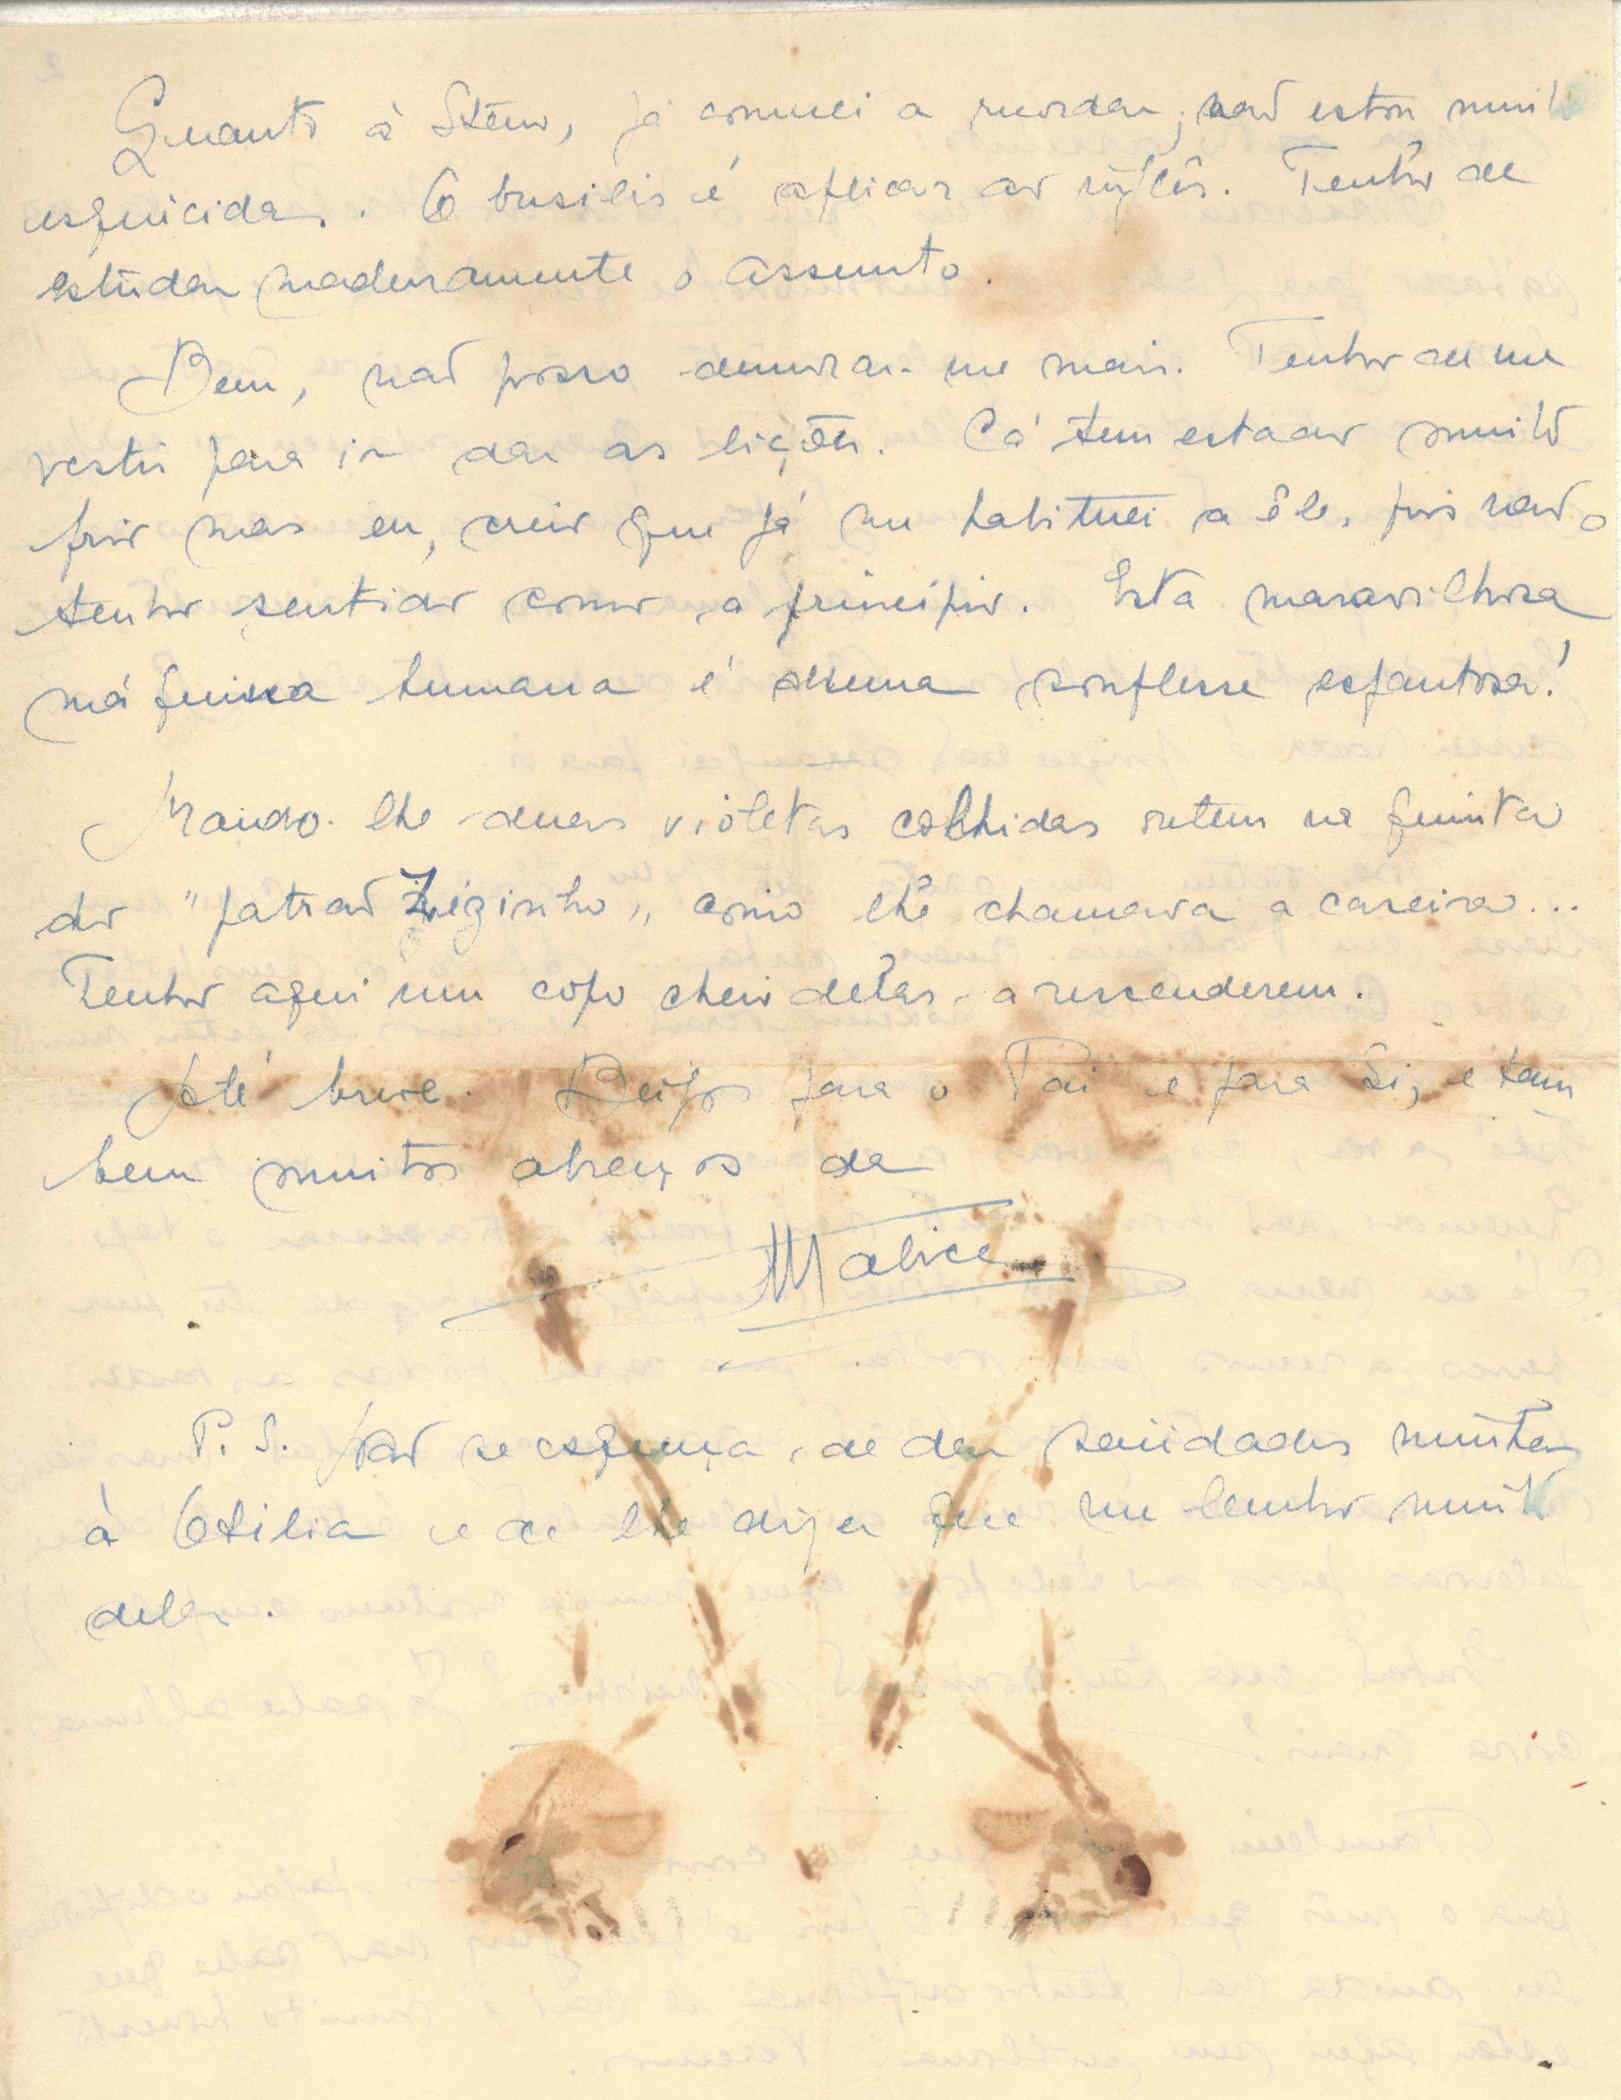 Quanto à Steno, já comecei a recordar; não estou muito
esquecida. O busilis é aplicar ao inglês. Tenho de
estudar maduramente o assunto.
Bem, não posso demorar-me mais. Tenho de me
vestir para ir dar as lições. Cá tem estado muito
frio mas eu, creio que já me habituei a êle, pois não o
tenho sentido como a princípio. Esta maravilhosa
máquina humana é duma souplesse espantosa!
Mando-lhe duas violetas colhidas ontem na quinta
do "patrão Zèzinho", como lhe chamava a caseira...
Tenho aqui um copo cheio delas a rescenderem.
Até breve. Beijos para o Pai e para Si, e tam
bem muitos abraços da
Malice
P. S. Não se esqueça de dar saüdades minhas
à Otilia e de lhe dizer que me lembro muito
dela.